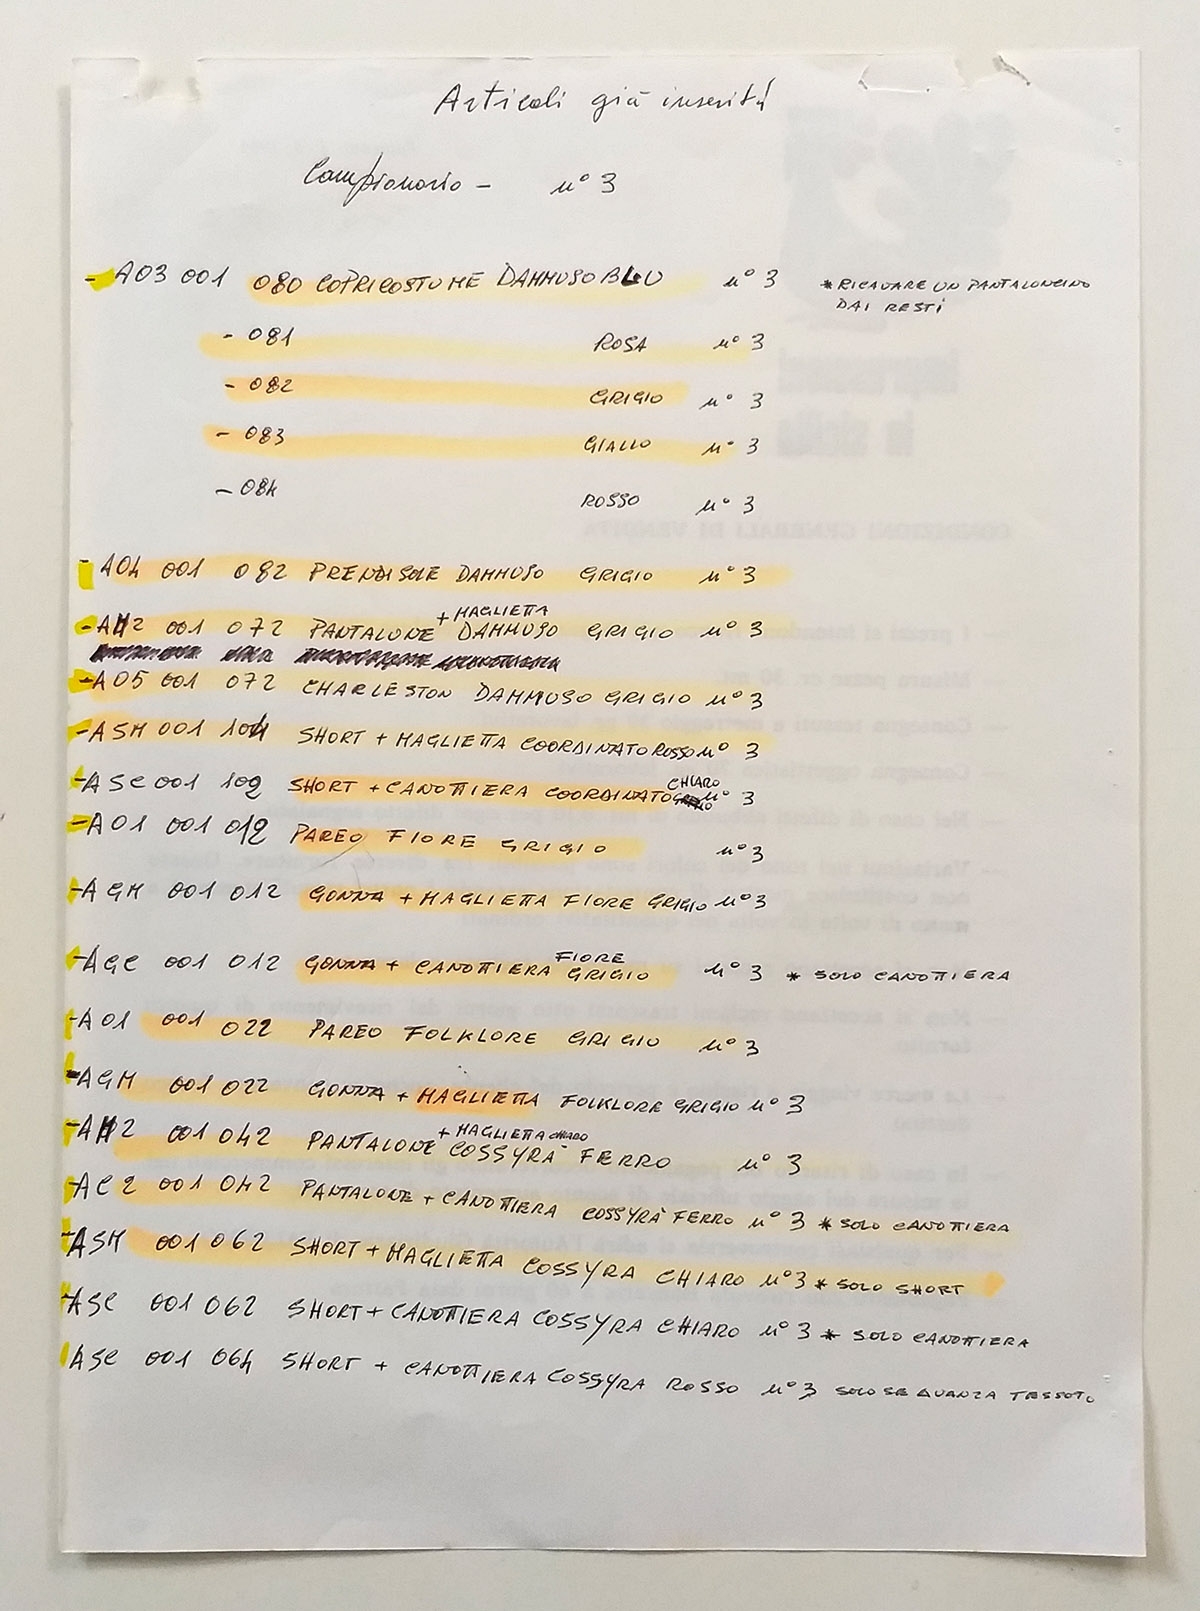 Articoli già inseriti
Campionario - n° 3
- A03 001 080 COPRICOSTUME DAMMUSO BLU n° 3 * RICAVARE UN PANTALONCINO
DAI RESTI
- 081 ROSA n° 3
- 082 GRIGIO n° 3
- 083 GIALLO n° 3
- 084 ROSSO n° 3
- A04 001 082 PRENDISOLE DAMMUSO GRIGIO n° 3
+ MAGLIETTA
- 001 072 PANTALONE DAMMUSO GRIGIO n° 3
- A05 001 072 CHARLESTON DAMMUSO GRIGIO n° 3
- ASM 001 104 SHORT + MAGLIETTA COORDINATO ROSSO n° 3
CHIARO
- ASC 001 102 SHORT + CANOTTIERA COORDINATO n° 3
- A01 001 012 PAREO FIORE GRIGIO n° 3
- AGM 001 012 GONNA + MAGLIETTA FIORE GRIGIO n° 3
FIORE
- AGC 001 012 GONNA + CANOTTIERA GRIGIO n° 3 * SOLO CANOTTIERA
- A01 001 022 PAREO FOLKLORE GRIGIO n° 3
- AGM 001 022 GONNA + MAGLIETTA FOLKLORE GRIGIO n° 3
+ MAGLIETTA CHIARO
- 001 042 PANTALONE COSSYRA FERRO n° 3
- AC2 001 042 PANTALONE + CANOTTIERA COSSYRA FERRO n° 3 * SOLO CANOTTIERA
- ASM 001 062 SHORT + MAGLIETTA COSSYRA CHIARO n° 3 * SOLO SHORT
- ASC 001 062 SHORT + CANOTTIERA COSSYRA CHIARO n° 3 * SOLO CANOTTIERA
ASC 001 064 SHORT + CANOTTIERA COSSYRA ROSSO n° 3 SOLO SE AVANZA TESSUTO